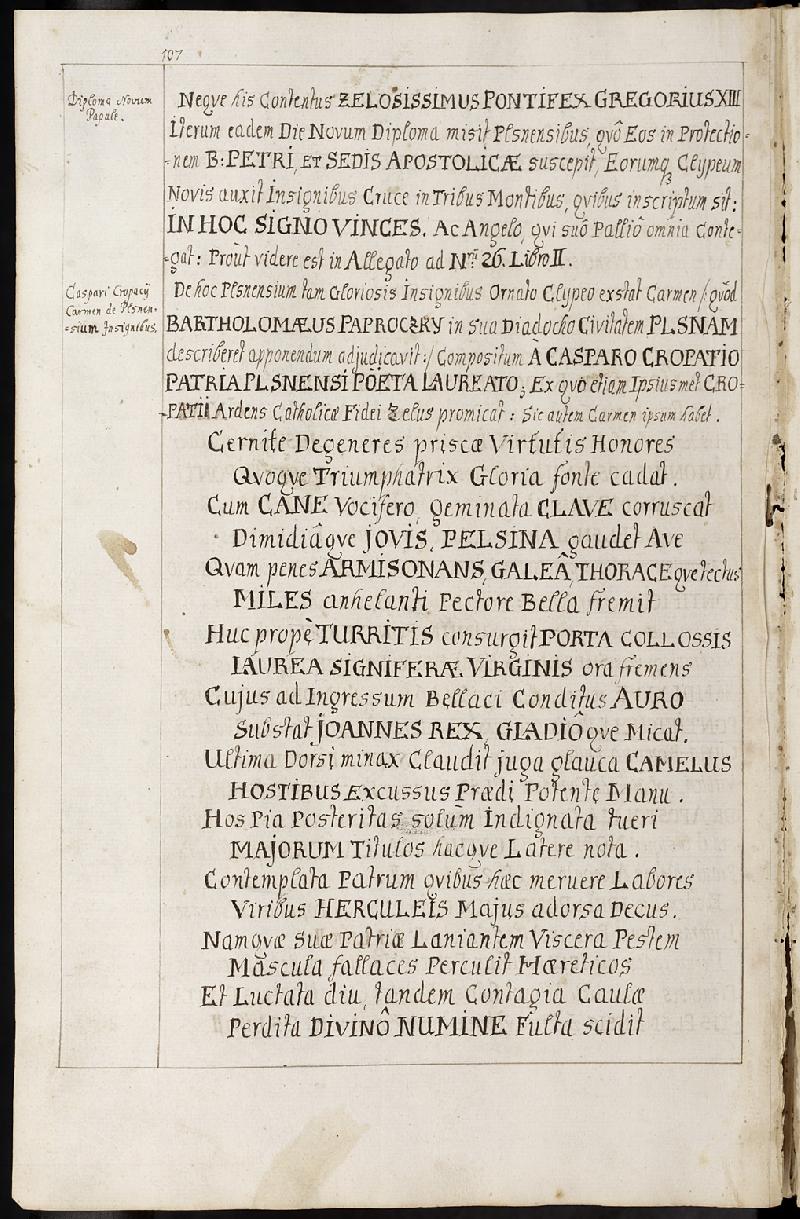 107
Diploma Novum
Papale.
Neqve his Contentus ZELOSISSIMUS PONTIFEX GREGORIUS XIII
Iterum eadem Die Novum Diploma misit Plsnensibus, qvô Eos in Protectio-
-nem B: PETRI, ET SEDIS APOSTOLICÆ suscepit, Eorumq, Clypeum
Novis auxit Insignibus Cruce in Tribus Montibus, qvibus inscriptum sit:
IN HOC SIGNO VINCES. Ac Angelo, qvi suô Palliô omnia Conte-
-gat: Proùt videre est in Allegato ad Nrũ 26. Libro II.
Caspari Cropacij
Carmen de Plsnen-
-sium Insignibus.
De hoc Plsnensium tam Gloriosis Insignibus Ornato Clypeo exstat Carmen /: qvod
BARTHOLOMÆUS PAPROCZKY in sua Diadocho Civitatem PLSNAM
describeret apponendum adjudicavit :/ Compositum À CASPARO CROPATIO
PATRIA PLSNENSI PÖETA LAUREATO; Ex qvo etiam Ipsiusmet CRO-
-PATII Ardens Catholicæ Fidei Zelus promicat: Sic autem Carmen ipsum habet.
Cernite Degeneres priscæ Virtutis Honores
Qvoqve Triumphatrix Gloria fonte cadat.
Cum CANE Vocifero, geminata CLAVE corruscat
Dimidiâqve JOVIS, PELSINA gaudet Ave
Qvam penes ARMISONANS, GALEÂ, THORACE qve tectus
MILES anhelanti Pectore Bella fremit
Huc propè TURRITIS consurgit PORTA COLLOSSIS
LAUREA SIGNIFERÆ VIRGINIS ora fremens
Cujus ad Ingressum Bellaci Conditus AURO
Substat JOANNES REX, GLADIÔ qve Micat.
Ultima Dorsi minax Claudit juga glauca CAMELUS
HOSTIBUS Excussus Prædi Potente Manu.
Hos Pia Posteritas solum Indignata tueri
MAJORUM Titulos hacqve Latere nota.
Contemplata Patrum qvibus hæc meruere Labores
Viribus HERCULEIS Majus adorsa Decus.
Namqvæ Suæ Patriæ Laniantem Viscera Pestem
Mascula fallaces Perculit Hæreticos
Et Luctata diu, tandem Contagia Caulæ
Perdita DIVINÔ NUMINE Fulta scidit